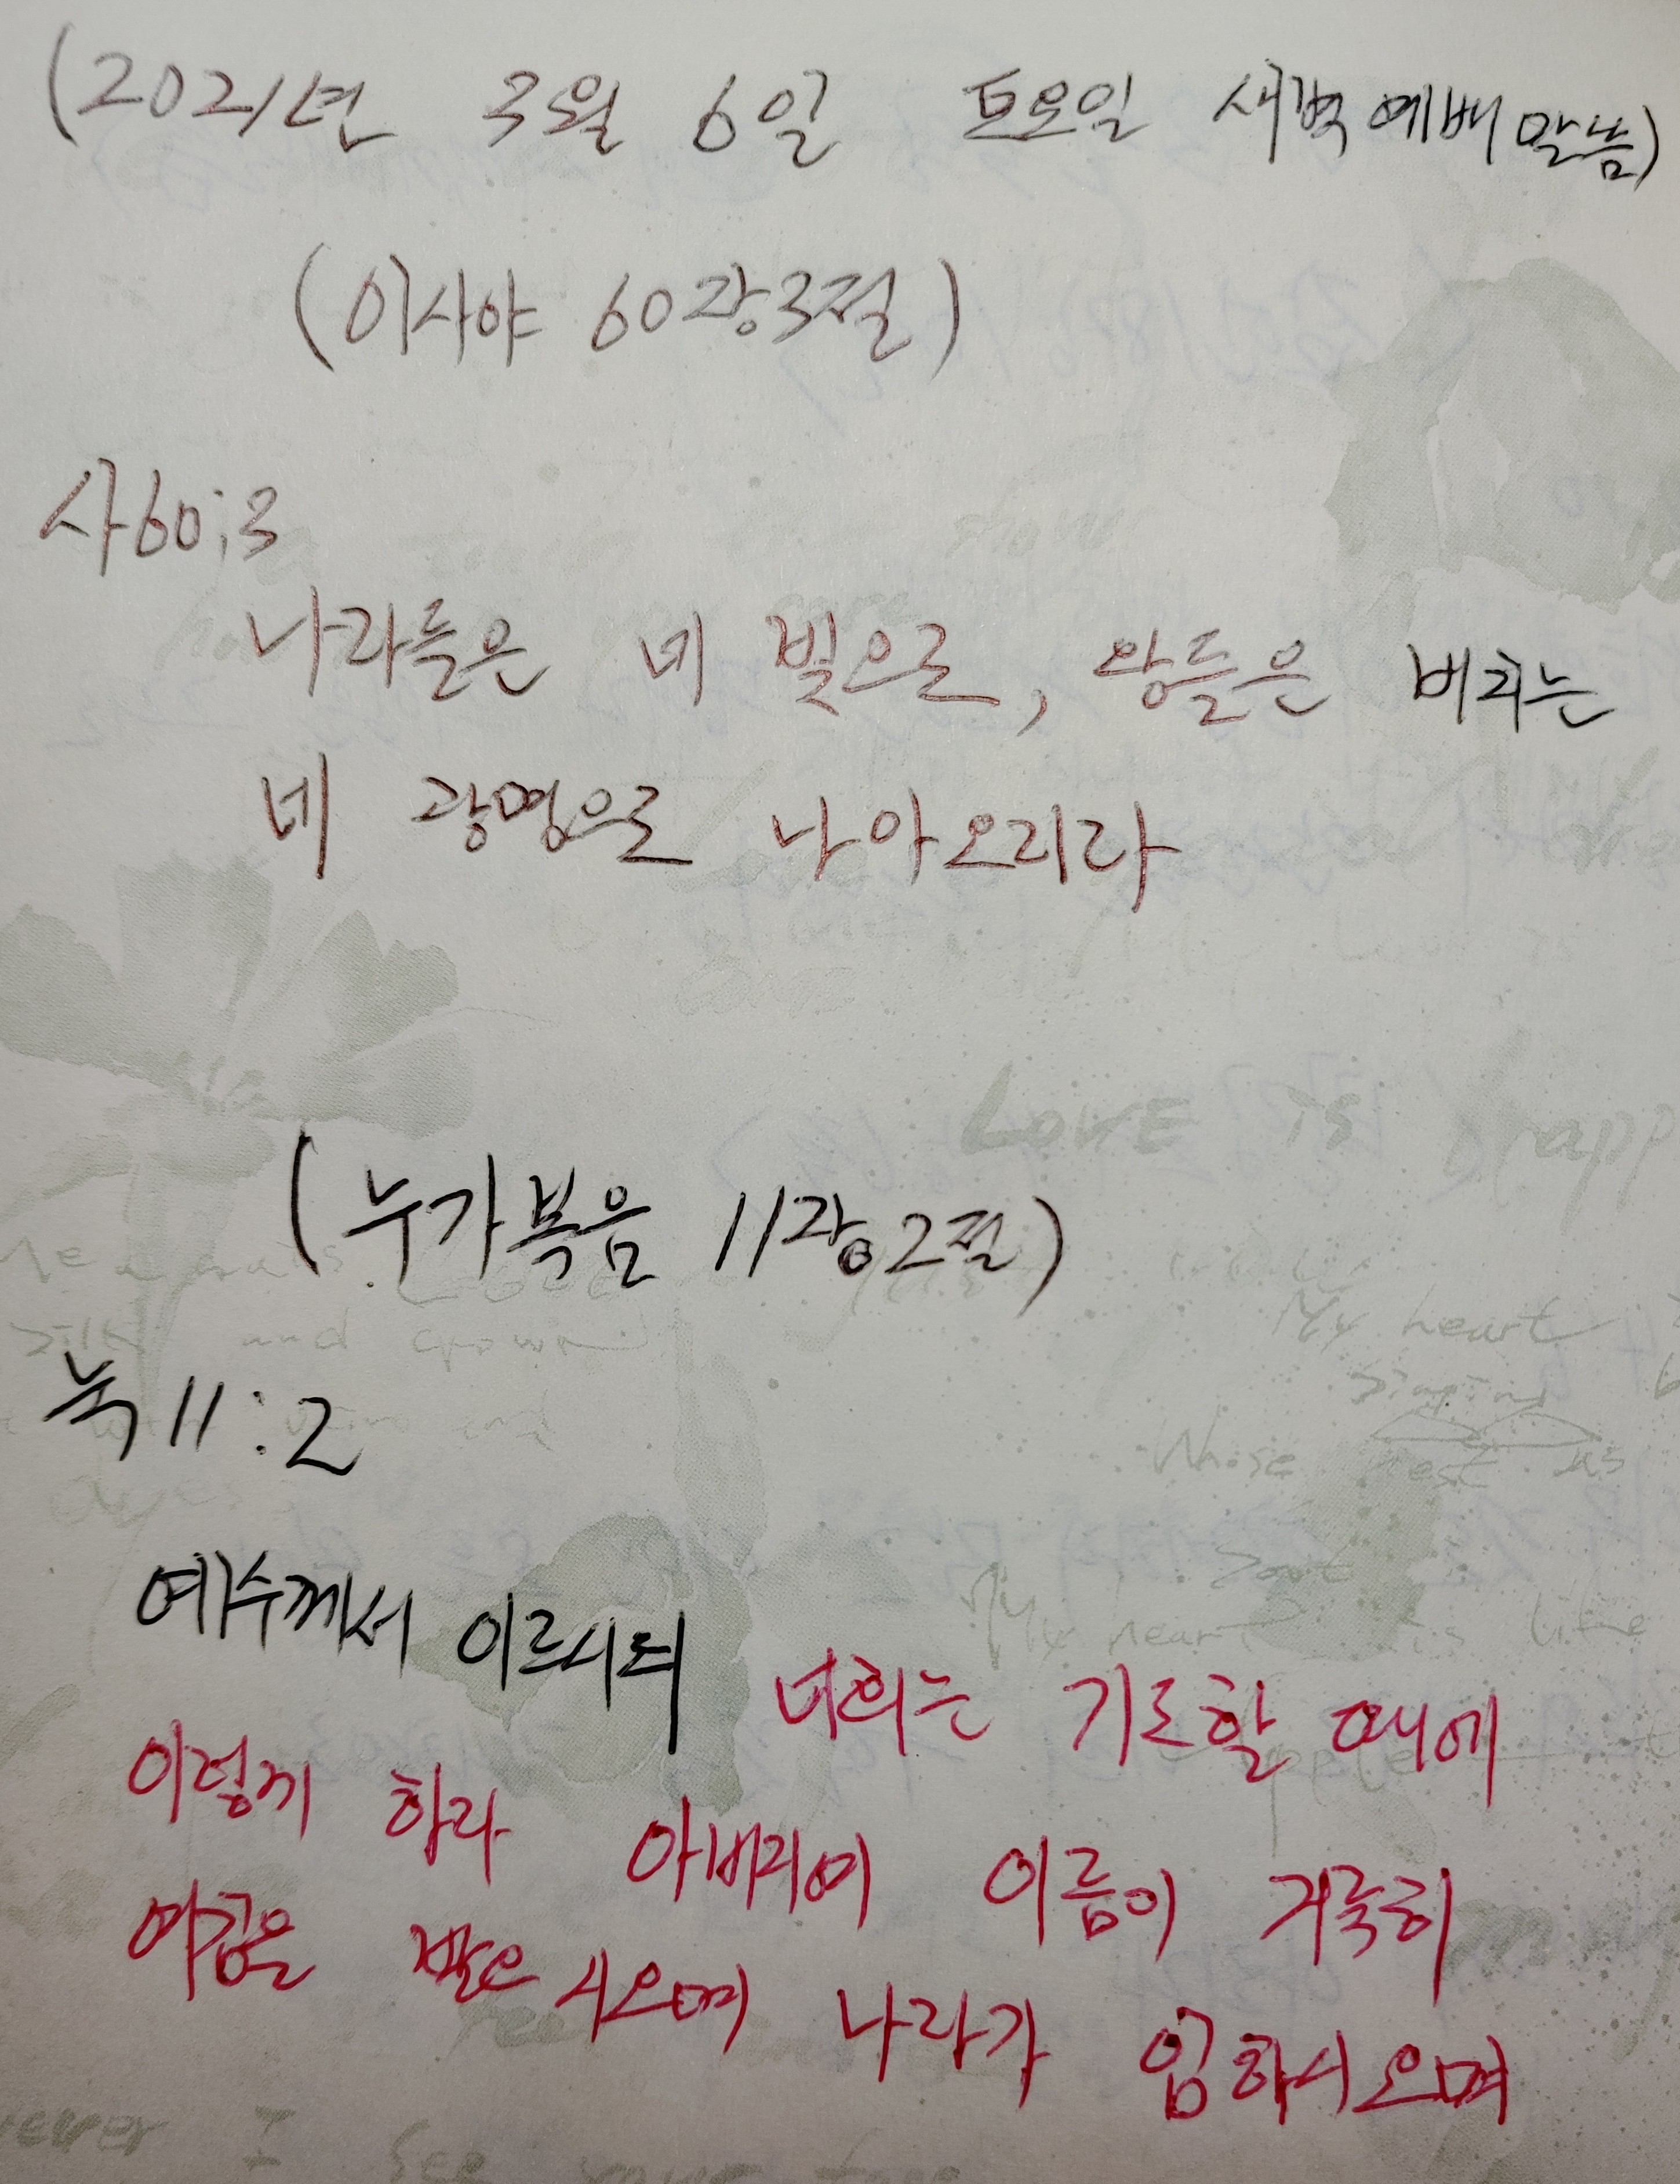 (2021년 3월 6일 토요일 새벽예배말씀)
(이사야 60장3절)
사60:3
나라들은 네 빛으로, 왕들은 비치는
네 광명으로 나아오리라
LOVE is
(누가복음 11장2절)
and crown
My heart
눅11:2
singing
Whose nest is
예수께서 이르시되 너희는 기도할 때에
My heart is like
이렇게 하라 아버지여 이름이 거룩히
여김을 받으시오며 나라가 임하시오며
I See your face